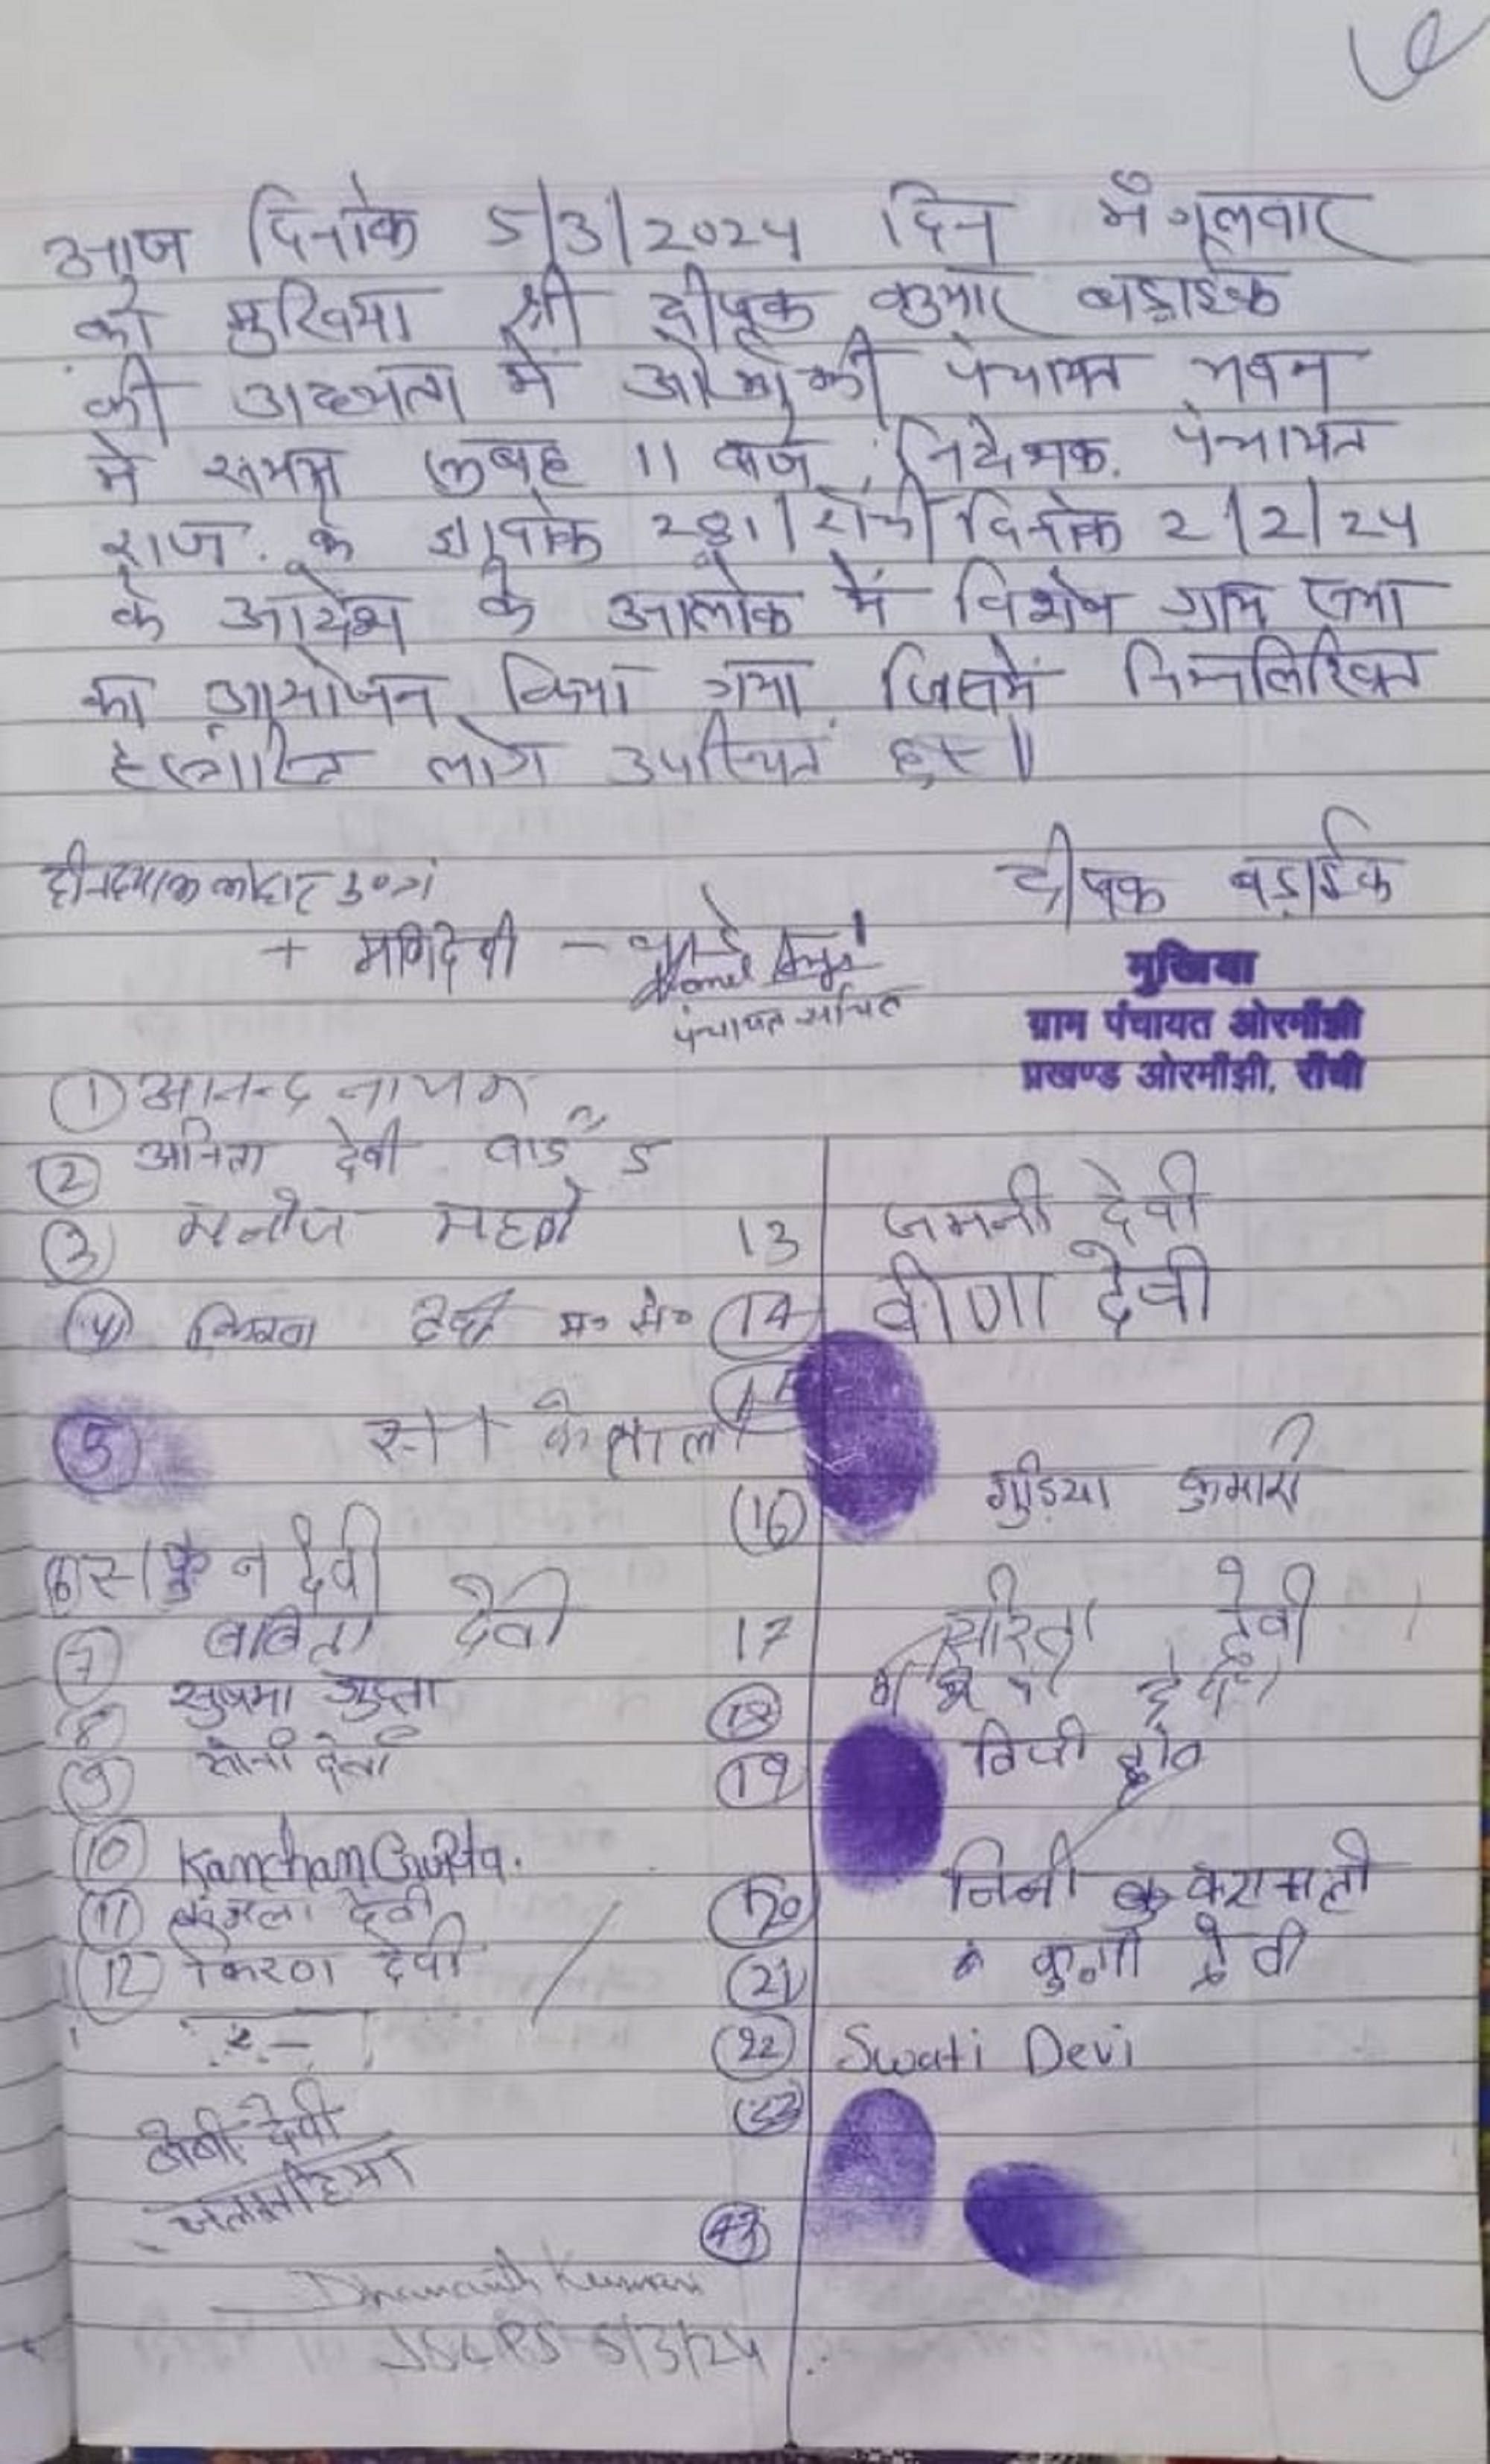 आज दिनांक 5/3/2024 दिन मंगलवार
को मुखिया श्री दीपक कुमार बड़ाईक
की अध्यक्षता में ओरमांझी पंचायत भवन
में समय सुबह 11 बजे निदेशक पंचायत
राज के ज्ञापांक 281/रांची दिनांक 2/2/24
के आदेश के आलोक में विशेष ग्राम सभा
का आयोजन किया गया जिसमें निम्नलिखित
लोग उपस्थित हुए॥
दीपक बड़ाईक
मुखिया
ग्राम पंचायत ओरमाँझी
प्रखण्ड ओरमाँझी, राँची
+ मनिदेवी -
पंचायत सचिव
① आनन्द नायक
② अनिता देवी वार्ड 5
③ मनोज महतो
④ किरण देवी
⑤
⑥ देवी
⑦ बबिता देवी
⑧ सुषमा गुप्ता
⑨ सोनी देवी
⑩ Kanchan Gupta.
⑪ कमला देवी
⑫ किरण देवी
बेबी देवी
जलसहिया
JSLPS 5/3/24
13 जमनी देवी
⑭ वीणा देवी
⑮
⑯ गुड़िया कुमारी
17 सरिता देवी
⑱ देवी
⑲
⑳
㉑ देवी
㉒ Swati Devi
㉓